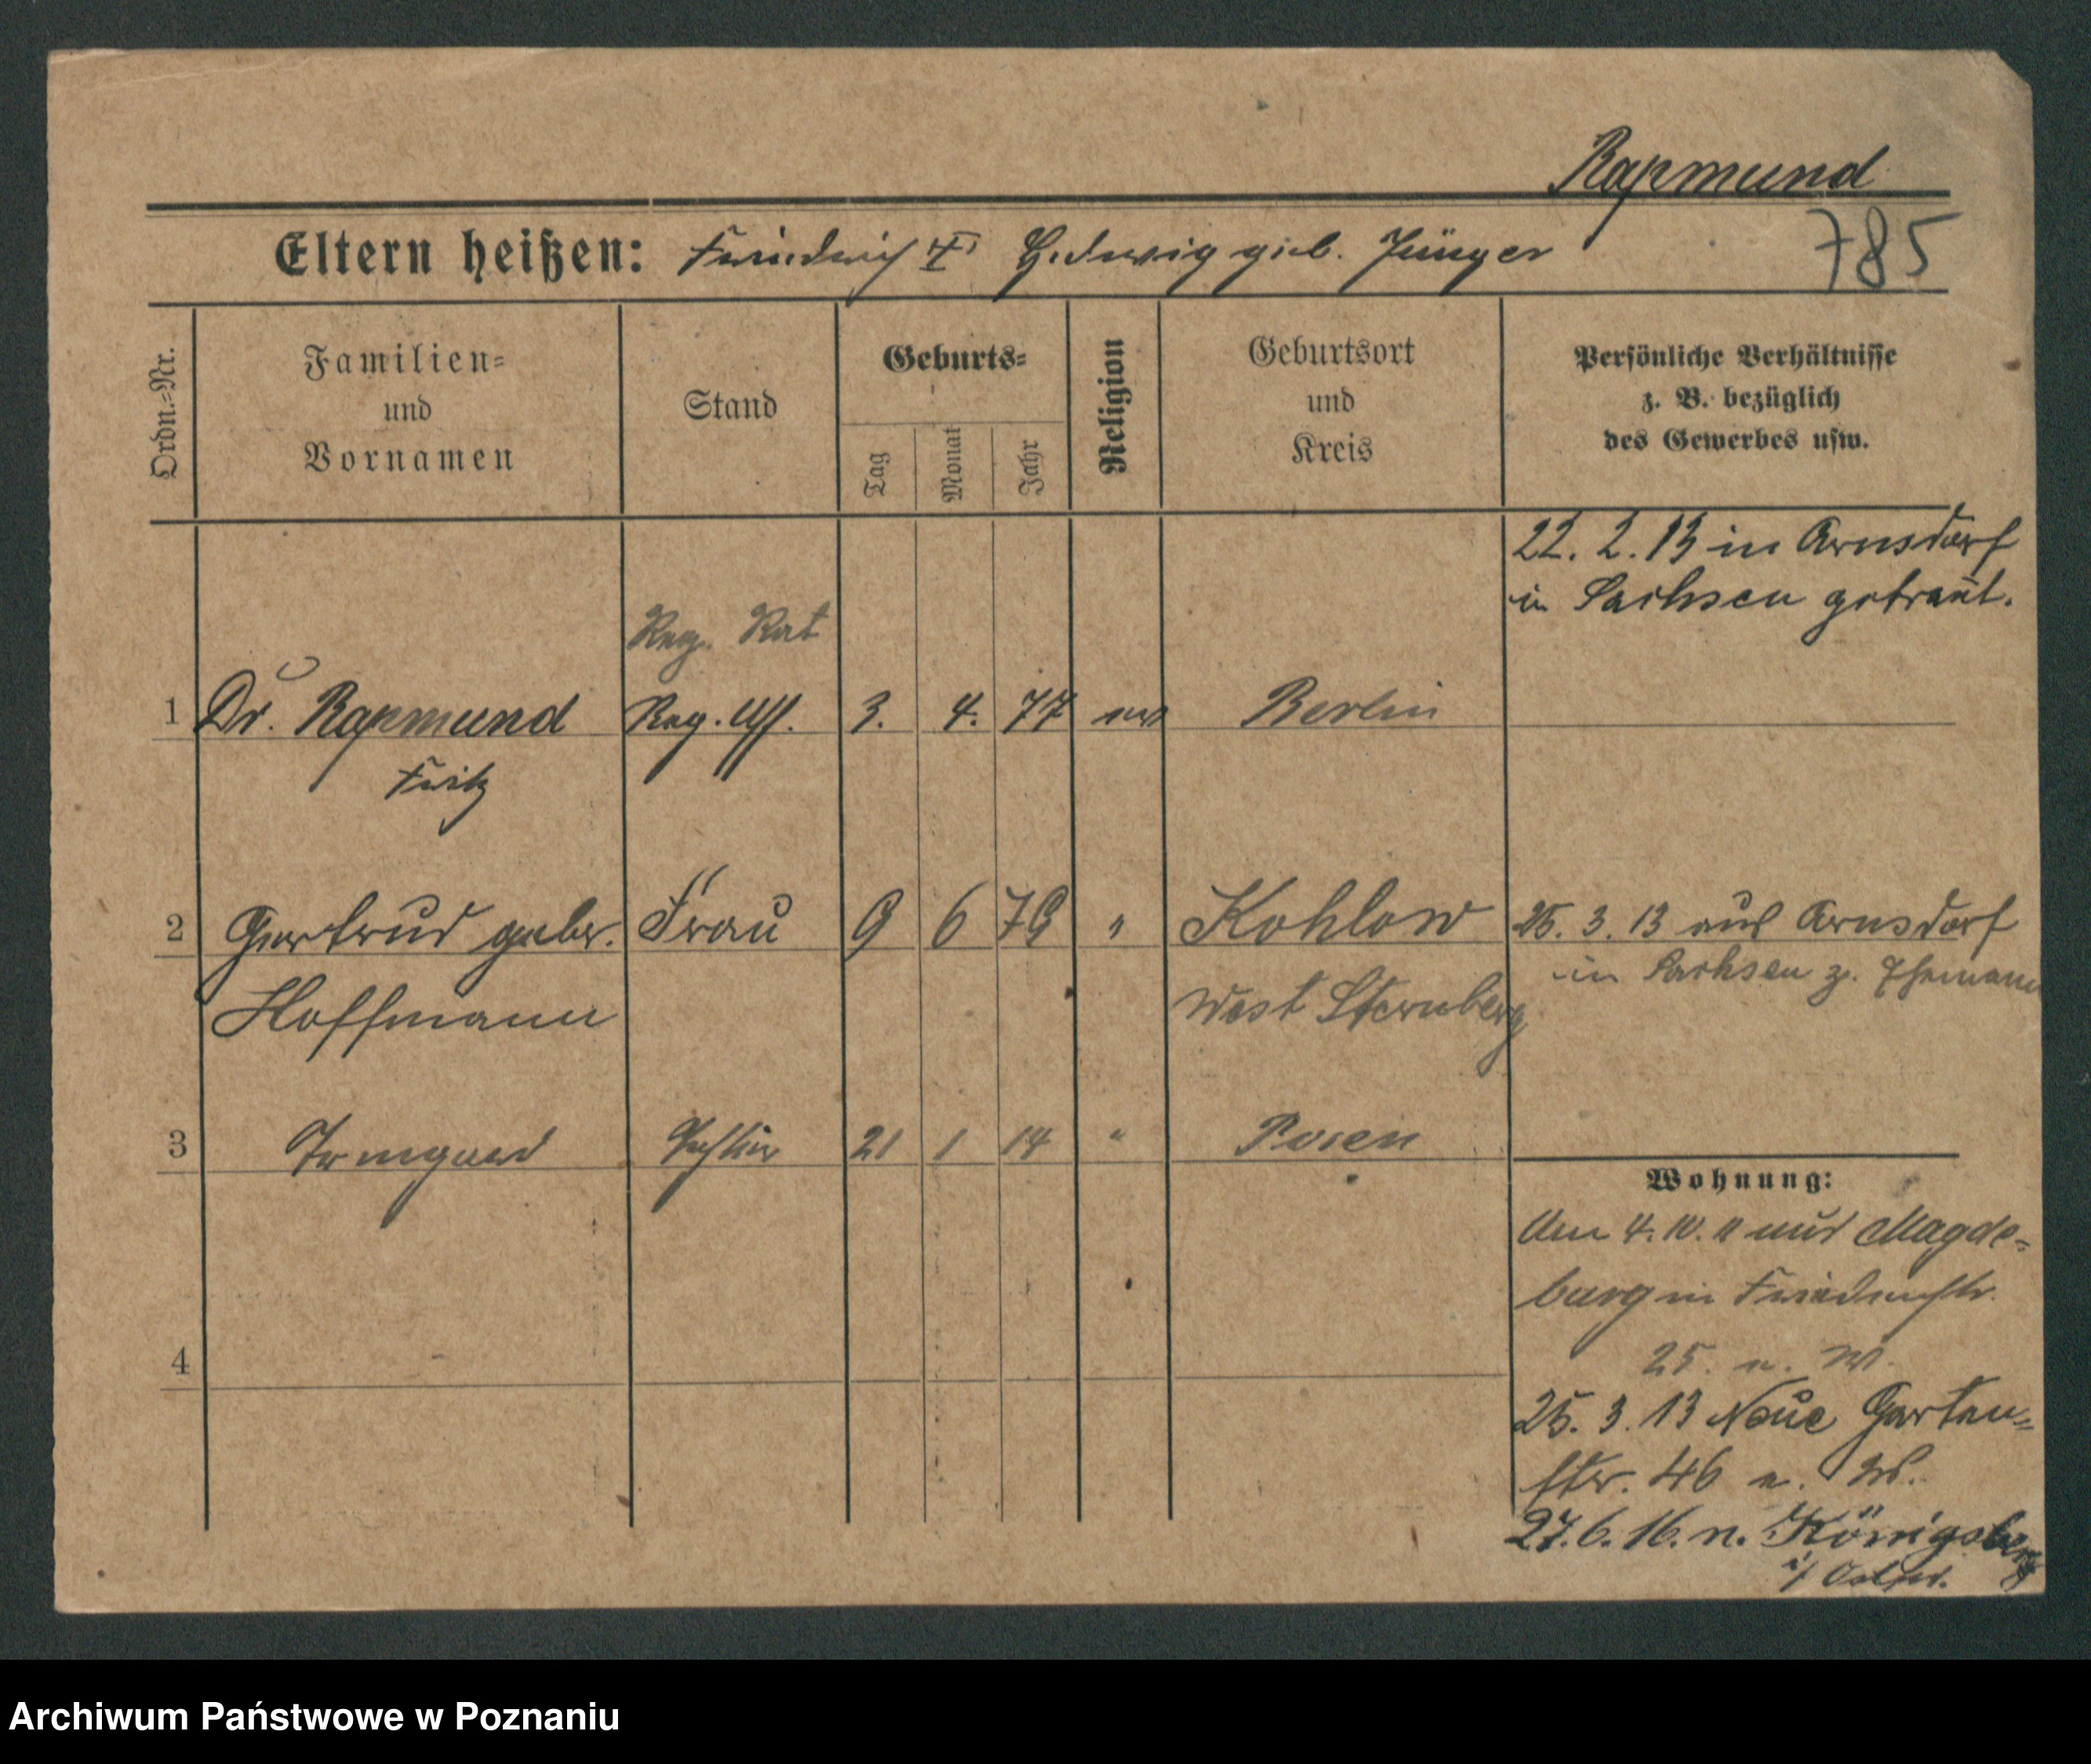 Rapmund
785
Eltern heißen: Friedrich u. Hedwig geb. Jünger
Ordn.-Nr.
Familien-
und
Vornamen
Stand
Geburts-
Tag
Monat
Jahr
Religion
Geburtsort
und
Kreis
Persönliche Verhältnisse
z. B. bezüglich
des Gewerbes usw.
22. 2. 13 in Arnsdorf
in Sachsen getraut.
Reg. Rat
1 Dr. Rapmund Reg. Ass. 3. 4. 77 ev. Berlin
Fritz
2 Gertrud geber. Frau 9 6 79 " Kohlow 25. 3. 13 aus Arnsdorf
in Sachsen z. Ehemann
Hoffmann West Sternberg
3 Irmgard Tochter 21 1 14 " Posen
Wohnung:
Am 4. 10. 11 aus Magde-
burg in Friedenstr.
4
25. n. W.
25. 3. 13 Neue Garten-
str. 46 n. W.
27. 6. 16. n. Königsberg
i/ Ostpr.
Archiwum Państwowe w Poznaniu